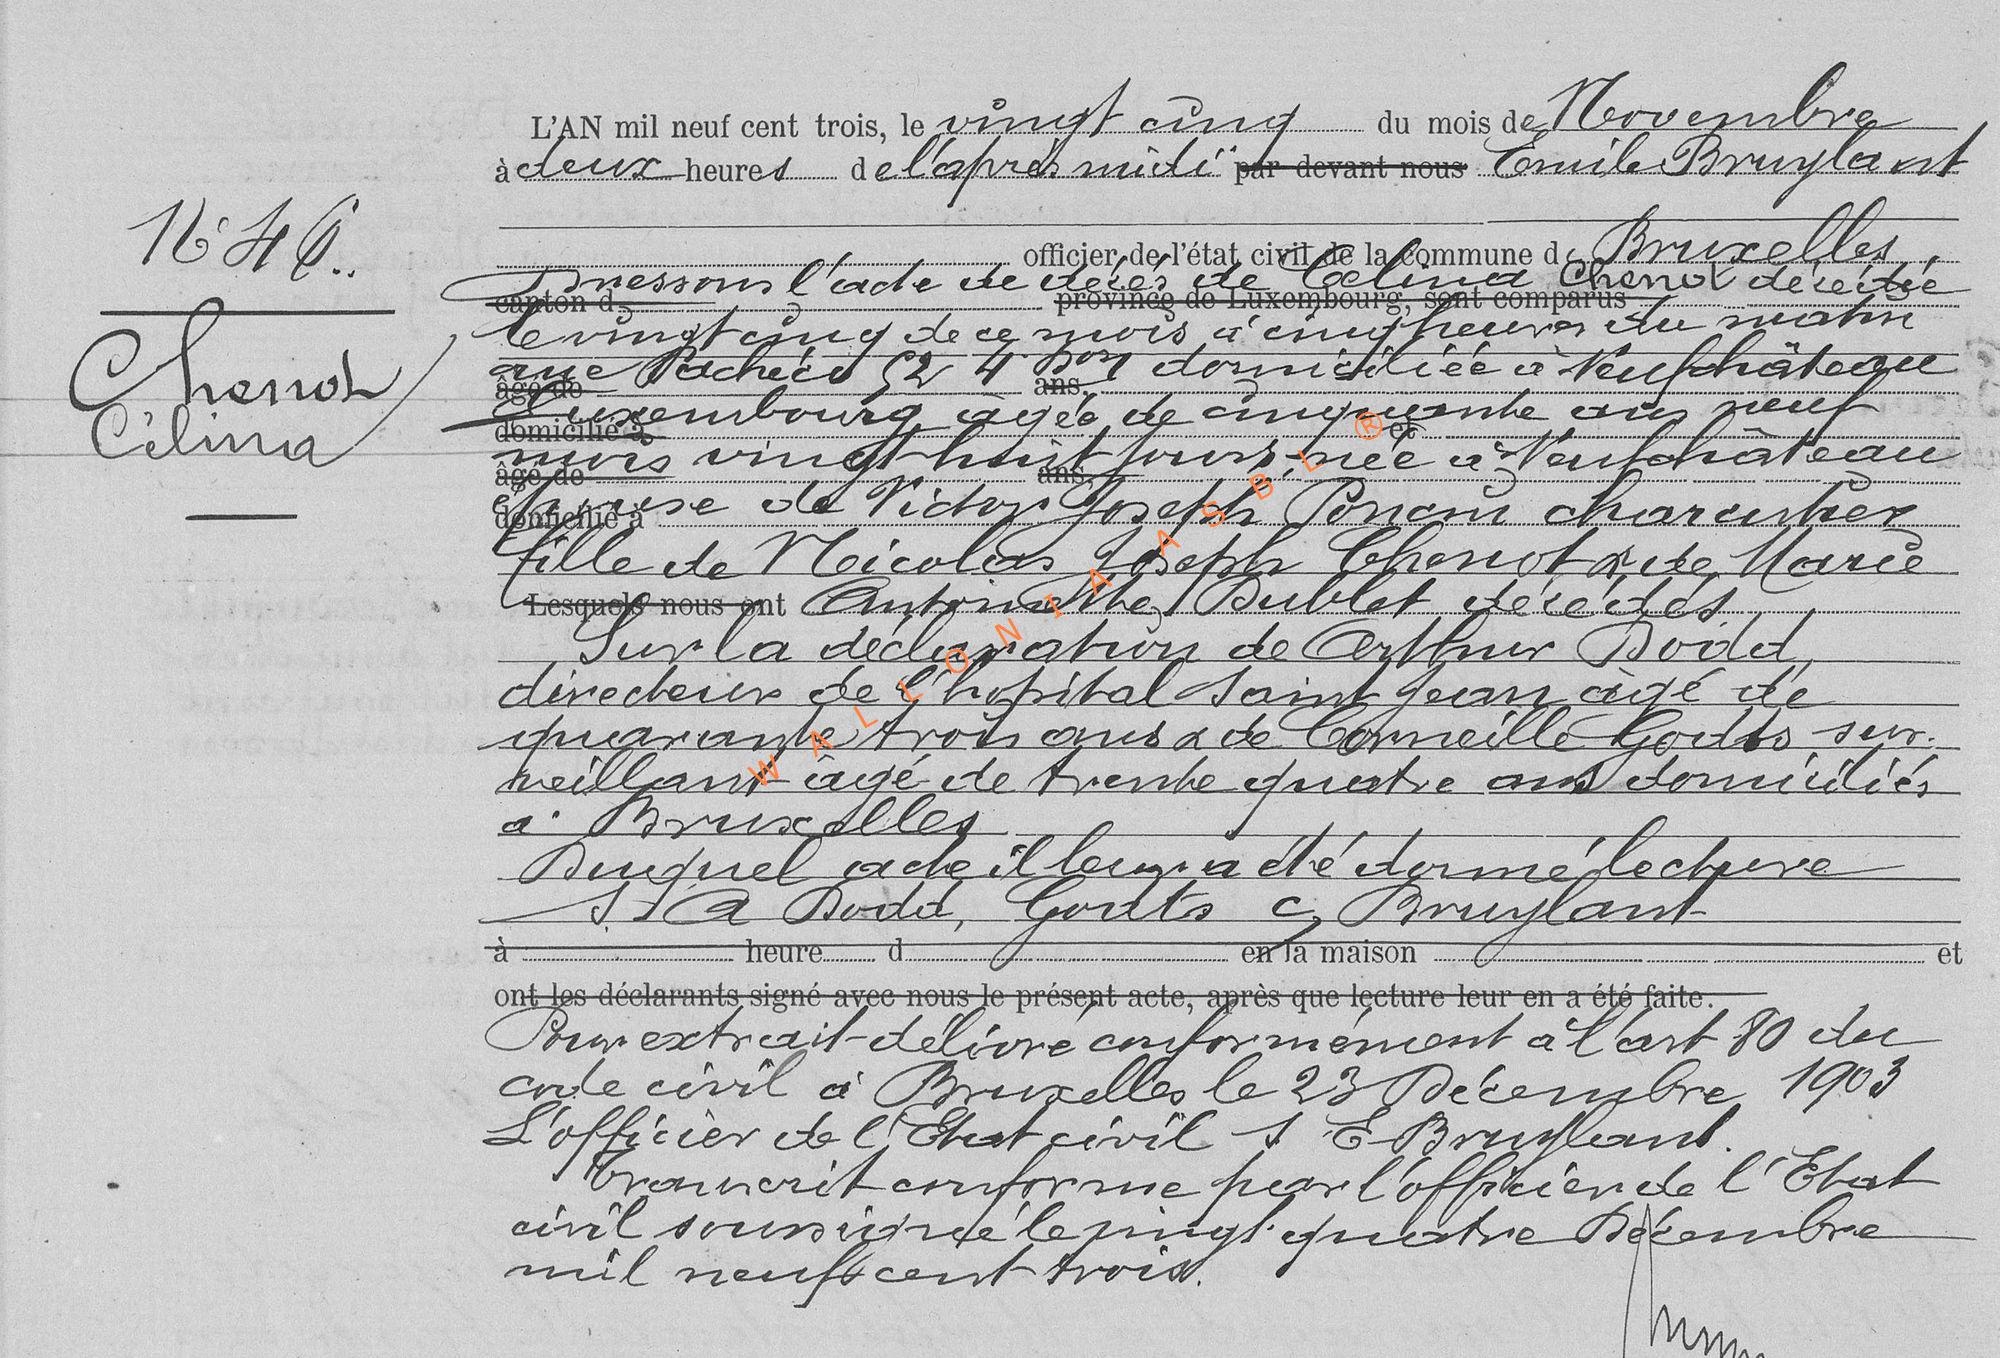 N° 46.
Chenot
Célina
L'AN mil neuf cent trois, le vingt cinq du mois de Novembre
à deux heures de l'après midi par devant nous Emile Bruylant
officier de l'état civil de la commune de Bruxelles
Dressons l'acte de décès de Célina Chenot décédée
canton d province de Luxembourg, sont comparus
le vingt cinq de ce mois à cinq heures du matin
rue Pachéco 52 4 Don domiciliée à Neufchâteau
âgé de ans,
Luxembourg âgée de cinquante ans neuf
domicilié à et
mois vingt huit jours, née à Neufchâteau
âgé de ans,
épouse de Victor Joseph Poncin charcutier
domicilié à
fille de Nicolas Joseph Chenot & de Marie
Lesquels nous ont Antoinette Dublet décédés.
Sur la déclaration de Arthur Dodd,
directeur de l'hopital Saint Jean âgé de
quarante trois ans & de Corneille Godts sur-
veillant âgé de trente quatre ans domiciliés
à Bruxelles
Duquel acte il leur a été donné lecture
S. A Dodd, Godts C, Bruylant
à heure d en la maison et
ont les déclarants signé avec nous le présent acte, après que lecture leur en a été faite.
Pour extrait délivré conformément à l'art 80 du
code civil à Bruxelles le 23 Décembre 1903
L'officier de l'Etat civil S E Bruylant.
Transcrit conforme par l'officier de l'Etat
civil soussigné le vingt quatre Décembre
mil neuf cent trois.
WALLONIA ASBL ®